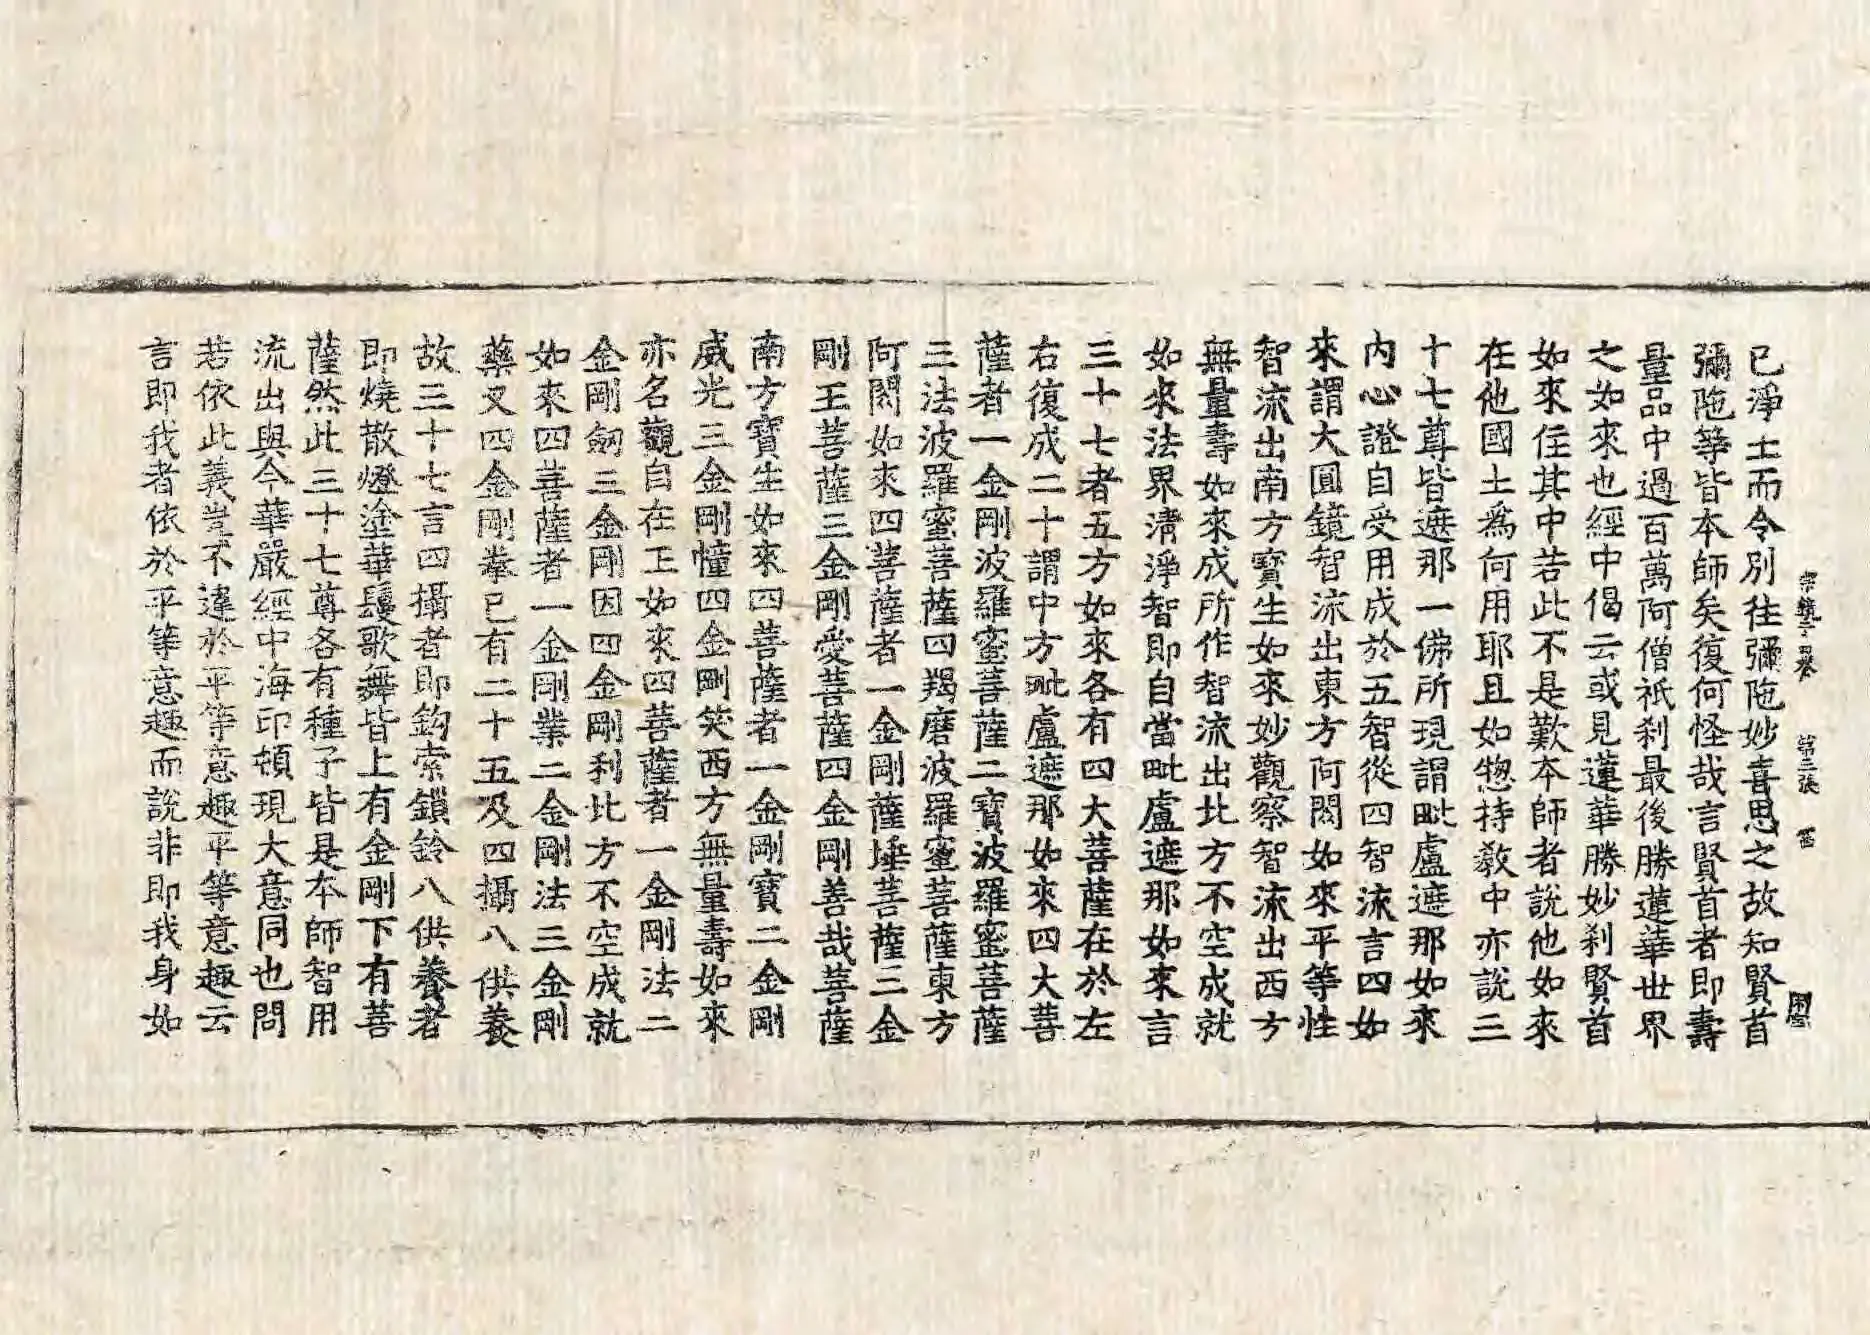 已淨土而令別往彌陁妙喜思之故知賢首
彌陁等皆本師矣復何怪哉言賢首者即壽
量品中過百萬阿僧祇刹最後勝蓮華世界
之如來也經中偈云或見蓮華勝妙刹賢首
如來住其中若此不是歎本師者說他如來
在他國土爲何用耶且如惣持教中亦說三
十七尊皆遮那一佛所現謂毗盧遮那如來
內心證自受用成於五智從四智流言四如
來謂大圓鏡智流出東方阿閦如來平等性
智流出南方寶生如來妙觀察智流出西方
無量壽如來成所作智流出北方不空成就
如來法界淸淨智即自當毗盧遮那如來言
三十七者五方如來各有四大菩薩在於左
右復成二十謂中方毗盧遮那如來四大菩
薩者一金剛波羅蜜菩薩二寶波羅蜜菩薩
三法波羅蜜菩薩四羯磨波羅蜜菩薩東方
阿閦如來四菩薩者一金剛薩埵菩薩二金
剛王菩薩三金剛愛菩薩四金剛善哉菩薩
南方寶生如來四菩薩者一金剛寶二金剛
威光三金剛幢四金剛笑西方無量壽如來
亦名觀自在王如來四菩薩者一金剛法二
金剛劒三金剛因四金剛利北方不空成就
如來四菩薩者一金剛業二金剛法三金剛
藥叉四金剛拳已有二十五及四攝八供養
故三十七言四攝者即鉤索鎖鈴八供養者
即燒散燈塗華鬘歌舞皆上有金剛下有菩
薩然此三十七尊各有種子皆是本師智用
流出與今華嚴經中海印頓現大意同也問
若依此義豈不違於平等意趣平等意趣云
言即我者依於平等意趣而說非即我身如